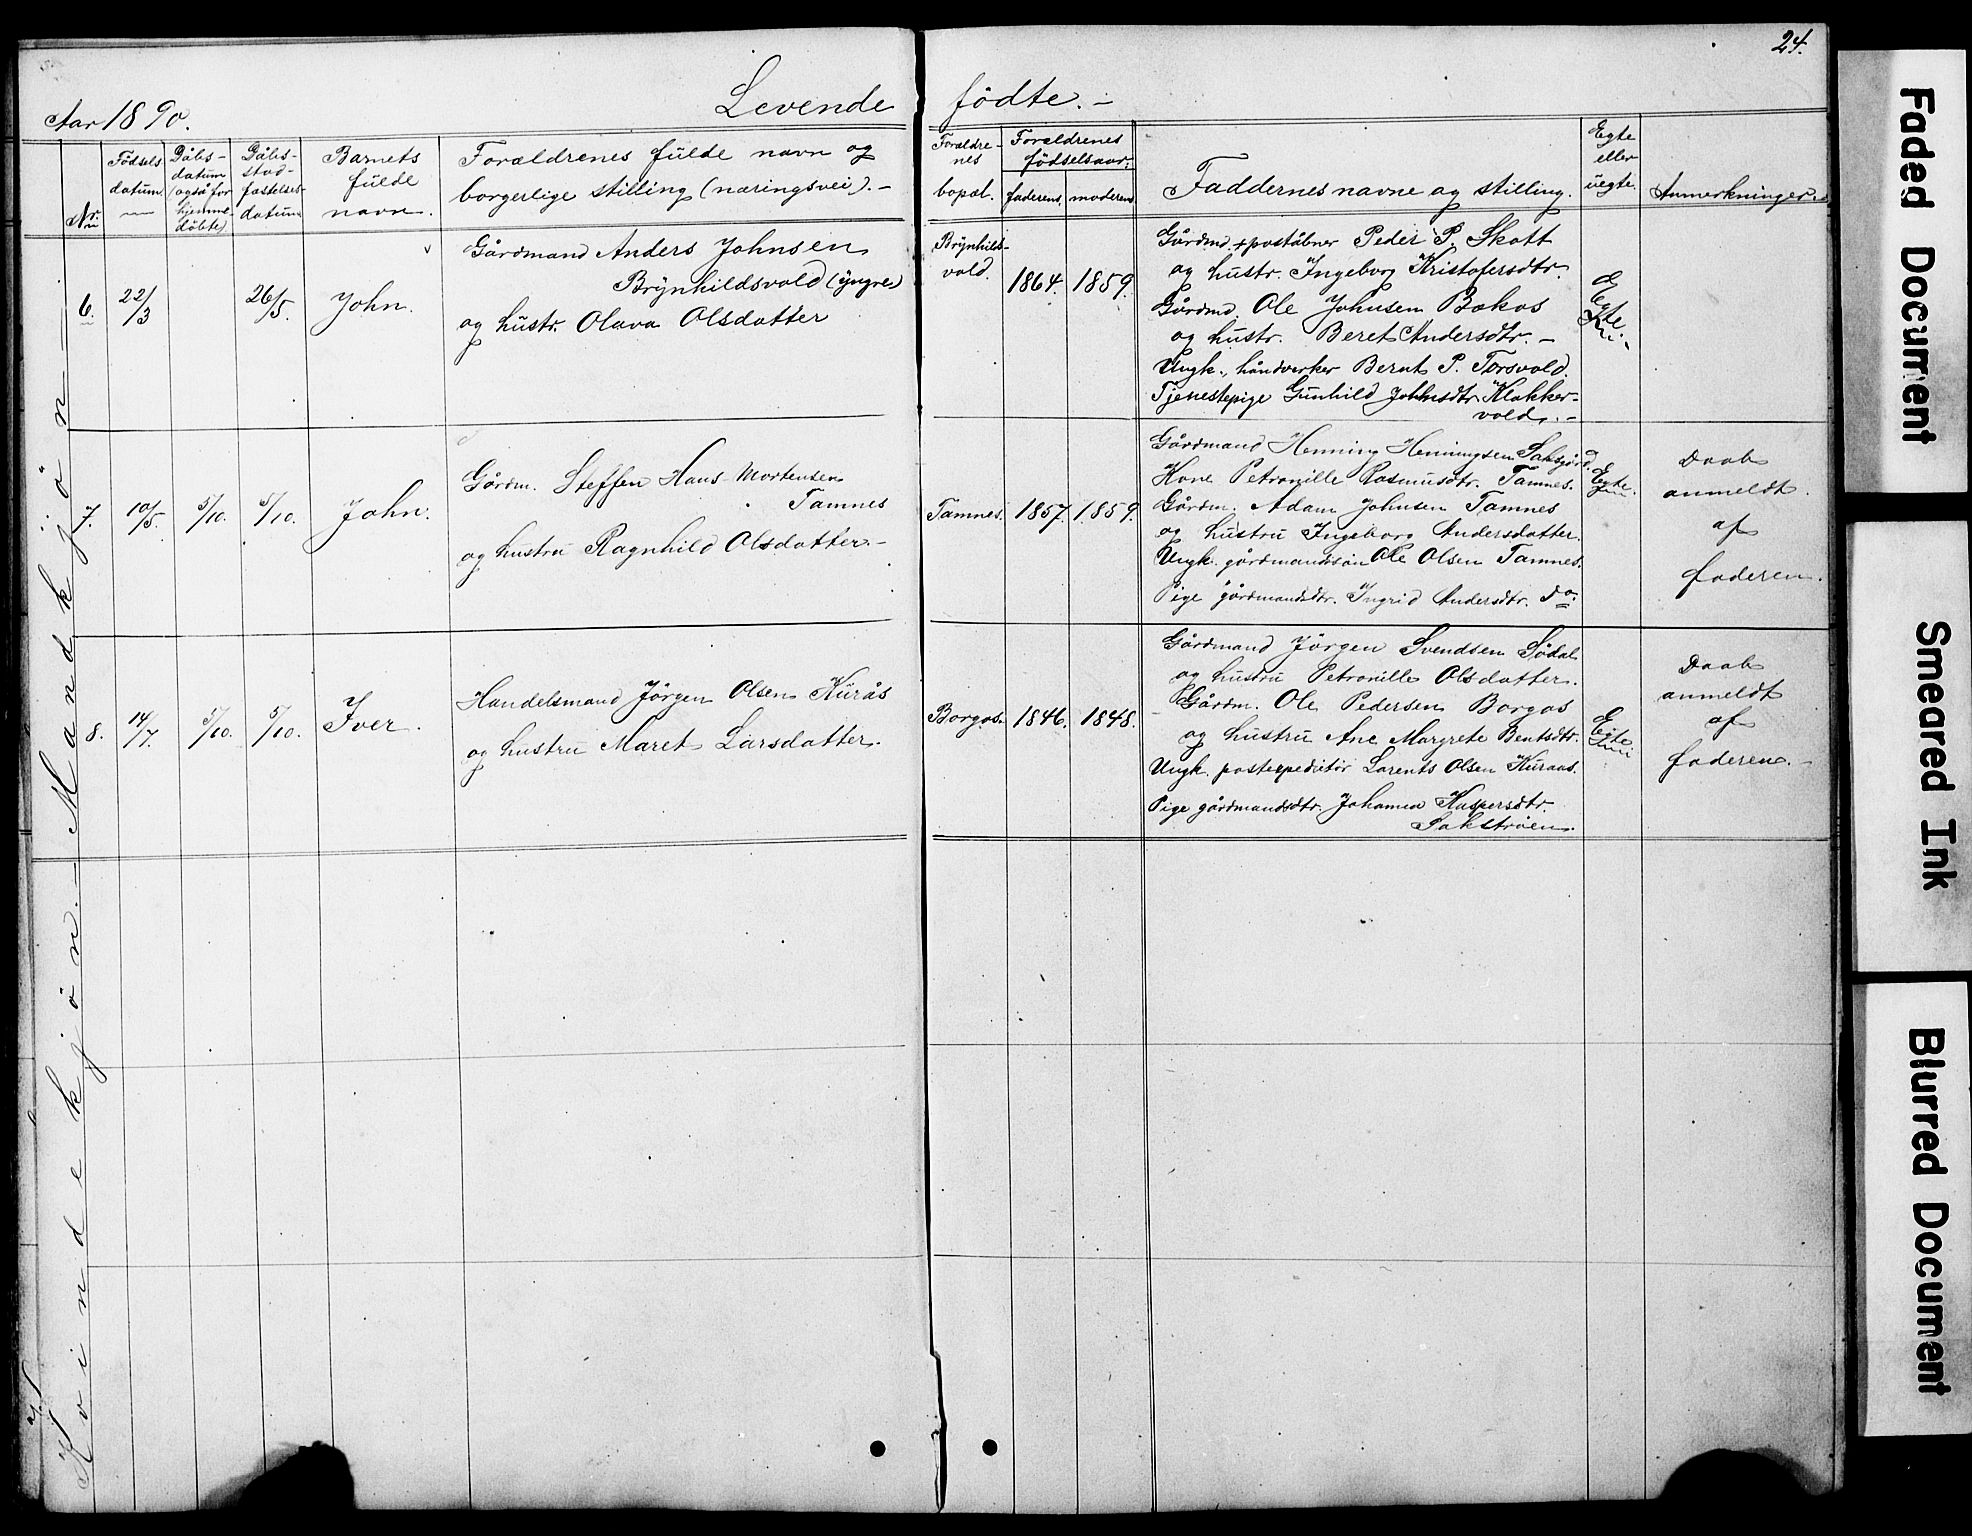 24.
Aar 1890.
Levende födte. –
Nr.
Födsels datum.
Dåbs-datum (også for hjemme-döbte)
Dåbs-stad-fæstelses-datum
Barnets fulde navn.
Forældrenes fulde navn og
borgerlige stilling (næringsvei). –
Forældre-nes bopæl.
Forældrenes födselsaar:
faderens. moderens
Faddernes navne og stilling.
Egte eller uegte.
Anmerkninger. –
Mandkjön –
6.
22/3
26/5.
John.
Gårdmand Anders Johnsen
Brynhildsvold (yngre)
og hustr. Olava Olsdatter
Brynhilds-
vold.
1864. 1859.
Gårdmd. + poståbner Peder P. Skott
og hustr. Ingeborg Kristofersdtr.
Gårdmd. Ole Johnsen Bakos
og hustr. Beret Andersdtr. –
Ungk., håndverker Bernt P. Torsvold.
Tjenestepige Gunhild Johnsdtr. Klokker-
vold. –
Egte.
7.
10/5.
5/10.
5/10.
John.
Gårdm. Steffen Hans Mortensen
Tamnes
og hustru Ragnhild Olsdatter. –
Tamnes.
1857. 1859.
Gårdmand Henning Henningsen Saksgård.
Kone Petronille Rasmusdtr. Tamnes.
Gårdm. Adam Johnsen Tamnes
og hustru Ingeborg Andersdatter.
Ungk. gårdmandssön Ole Olsen Tamnes.
Pige gårdmandsdtr. Ingrid Andersdtr. Do.
Egte.
Daab
anmeldt.
af
faderen.
8.
14/7.
5/10.
5/10.
Iver.
Handelsmand Jörgen Olsen Kurås
og hustru Maret Larsdatter.
Borgos.
1846. 1848.
Gårdmand Jörgen Svendsen Södal
og hustru Petronille Olsdatter.
Gårdm. Ole Pedersen Borgos
og hustru Ane Margrete Bentsdtr.
Ungk. postexpeditör Lorents Olsen Kuraas.
Pige gårdmandsdtr. Johanna Kaspersdtr.
Sakströen.
Egte
Daab
anmeldt
af
faderen. –
Kvindekjön. –
Faded Document
Smeared Ink
Blurred Document